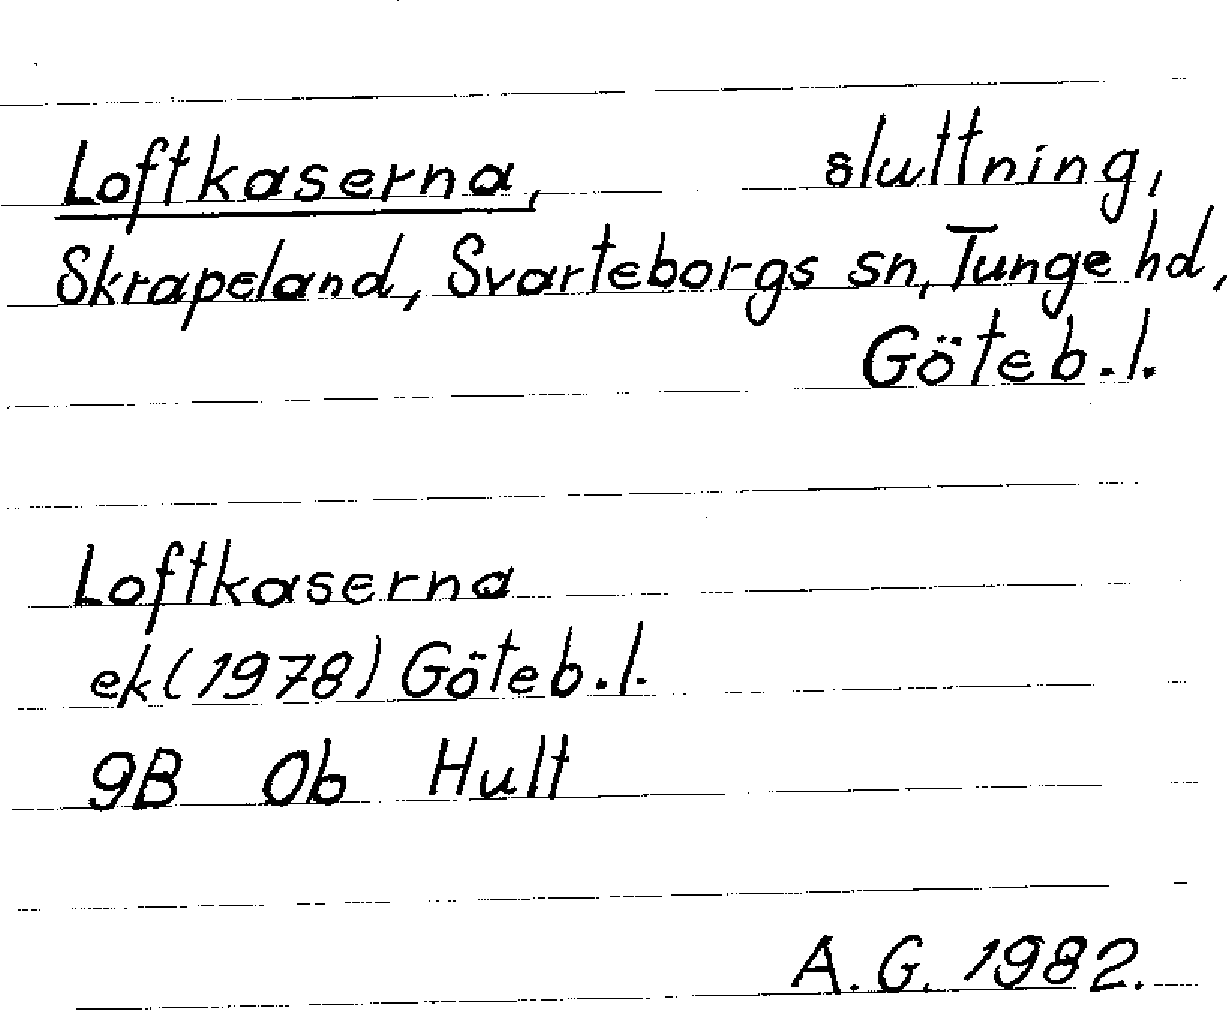 Loftkaserna, sluttning,
Skrapeland, Svarteborgs sn, Tunge hd,
Göteb.l.
Loftkaserna
ek (1978) Göteb.l.
9B 0b Hult
A.G. 1982.